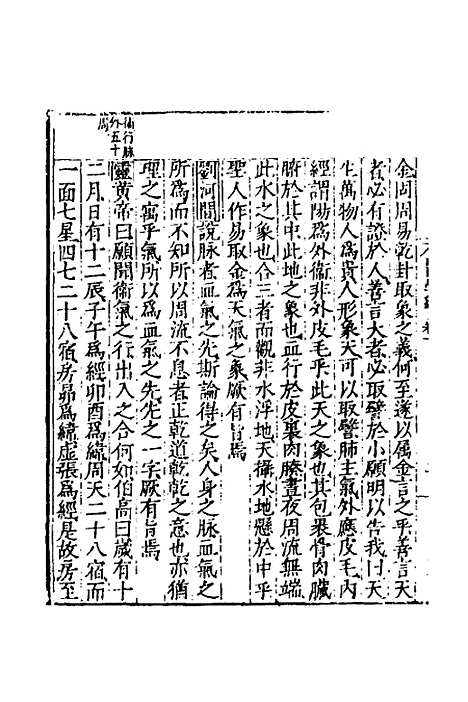 金固周易乾卦取象之義何至遂以属金言之乎善言天
者必有證於人善言大者必取譬於小願明以告我付天
生萬物人爲貴人形象天可以取譬肺主氣外應皮毛内
經謂陽爲外衛非外皮毛乎此天之象也其包裹骨肉臟
腑於其中此地之象也血行於皮裏肉腠晝夜周流無端
此水之象也合三者而觀非水浮地天攝水地懸於中乎
聖人作易取金爲天氣之象厥有旨焉
劉河間說脉者血氣之先斯論得之矣人身之脉血氣之
所爲而不知所以周流不息者正乾道乾乾之意也亦猶
理之寓乎氣所以爲血氣之先先之一字厥有旨焉
衛行脉
外五十
周
靈黄帝曰願聞衛氣之行出入之合何如伯高曰歲有十
二月日有十二辰子午爲經卯酉爲緯周天二十八宿而
一面七星四七二十八宿房昴爲緯虚張爲經是故房至